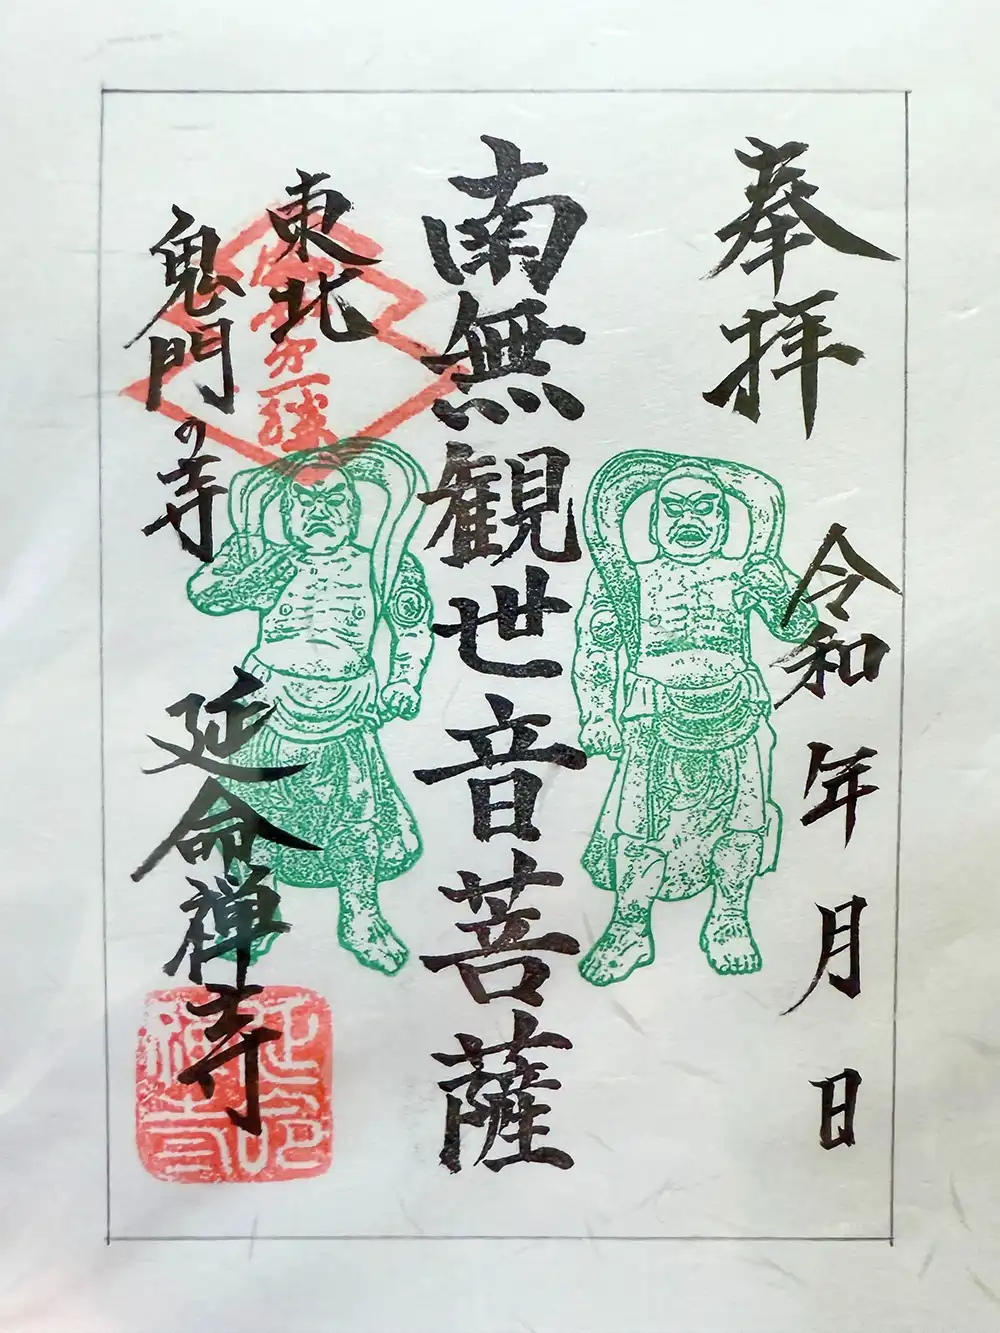 奉拝
令和 年 月 日
南無観世音菩薩
東北
鬼門の寺
延命禅寺
延命禅寺